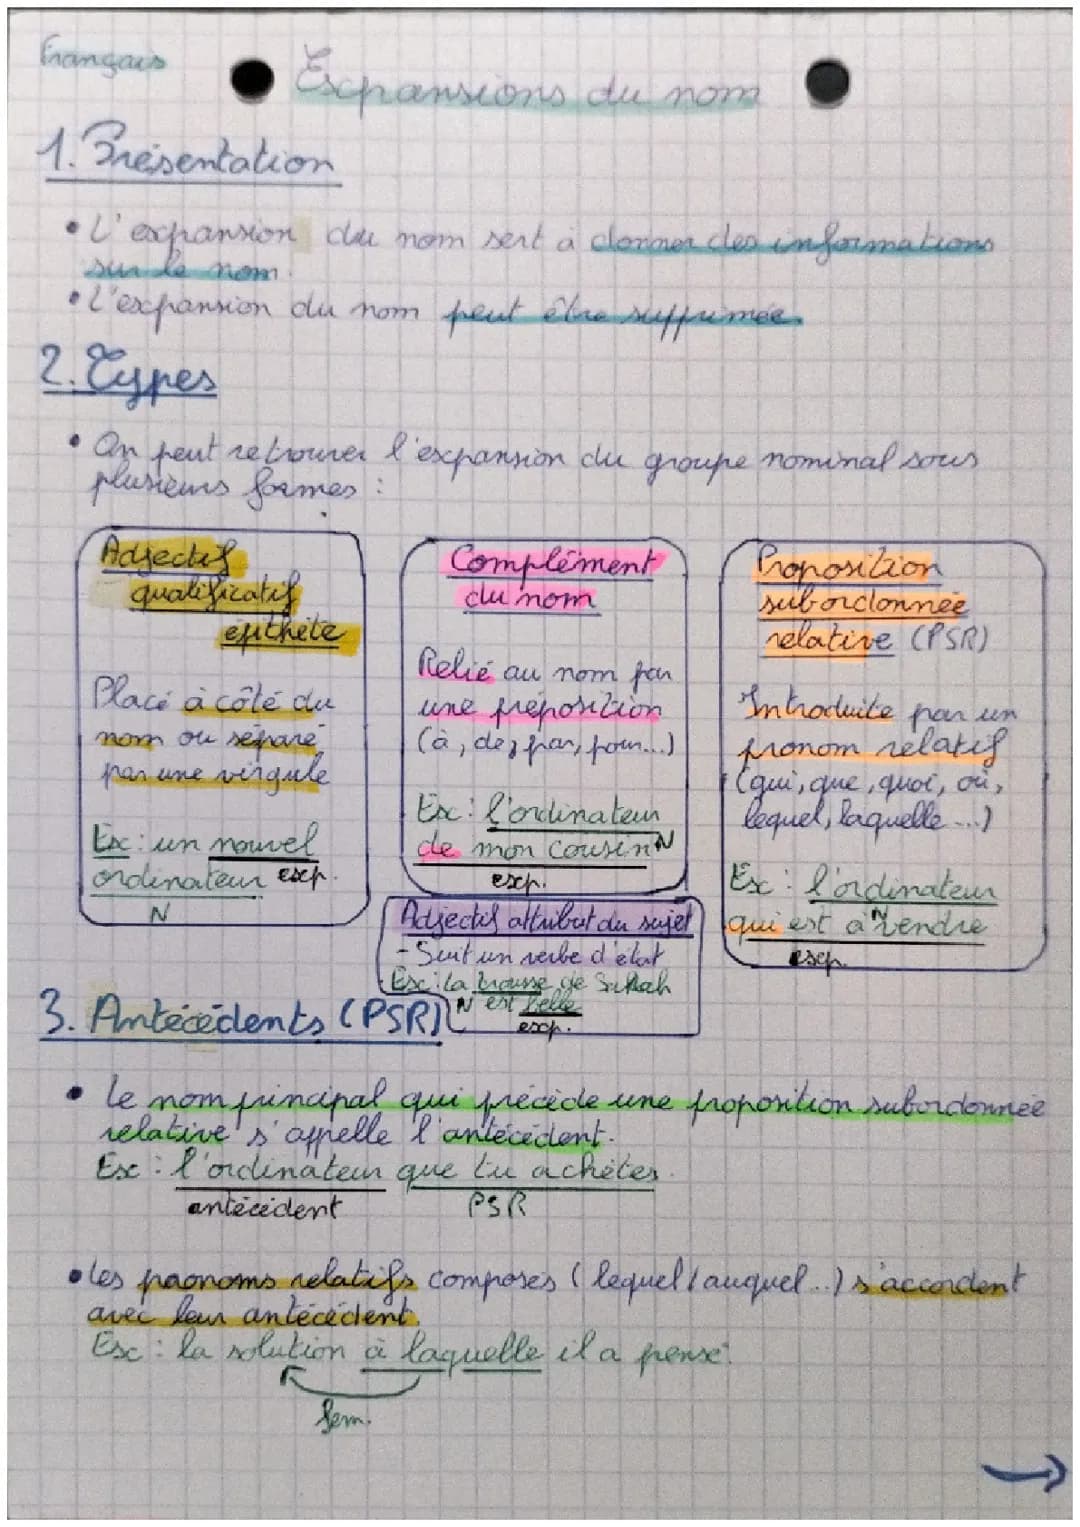 Français
Expansions du nom
1. Présentation
• L'expansion du nom sert à donner des informations
sur le nom.
• L'expansion du nom peut être supprimée.
2. Types
• On peut retrouver l'expansion du groupe nominal sous
plusieurs formes :
Adjectif
qualificatif
épithète
Placé à côté du
nom ou séparé
par une virgule
Ex : un nouvel
ordinateur exp.
N
Complément
du nom
Relié au nom par
une préposition
(à, de, par, pour...)
Ex : l'ordinateur
de mon cousin N
exp.
Proposition
subordonnée
relative (PSR)
Introduite par un
pronom relatif
(qui, que, quoi, où,
lequel, laquelle ...)
Ex : l'ordinateur
N
qui est à vendre
exp.
Adjectif attribut du sujet
- Suit un verbe d'état
Ex : La trousse de Sarah
N est belle
exp.
3. Antécédents (PSR)
• Le nom principal qui précède une proposition subordonnée
relative s'appelle l'antécédent.
Ex : l'ordinateur que tu achètes.
antécédent PSR
• Les pronoms relatifs composés (lequel/auquel...) s'accordent
avec leur antécédent.
Ex : la solution à laquelle il a pensé.
fem.